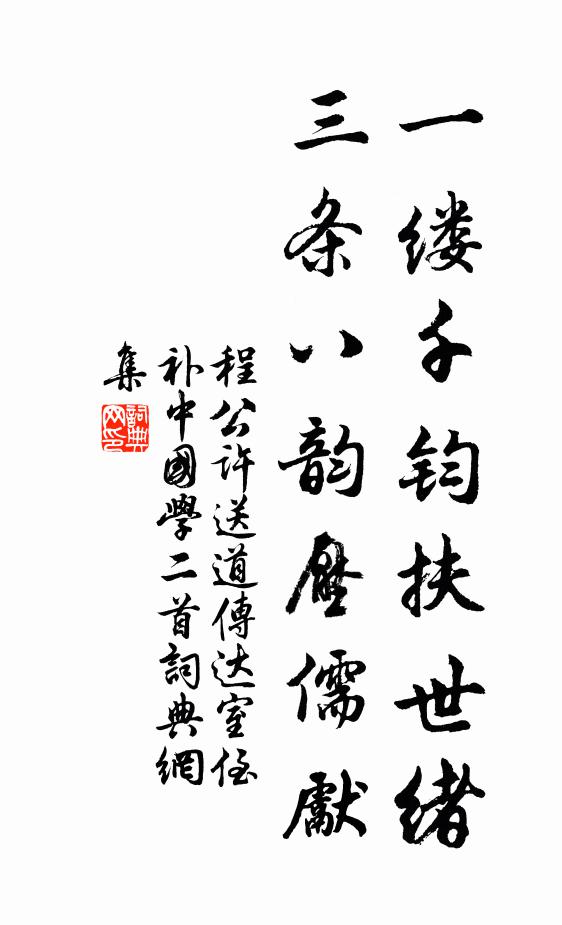 一缕千钧扶世绪
三条八韵壓儒獻
程公许送道傳达室侄
补中國學二首詞典網
集
詞典網印